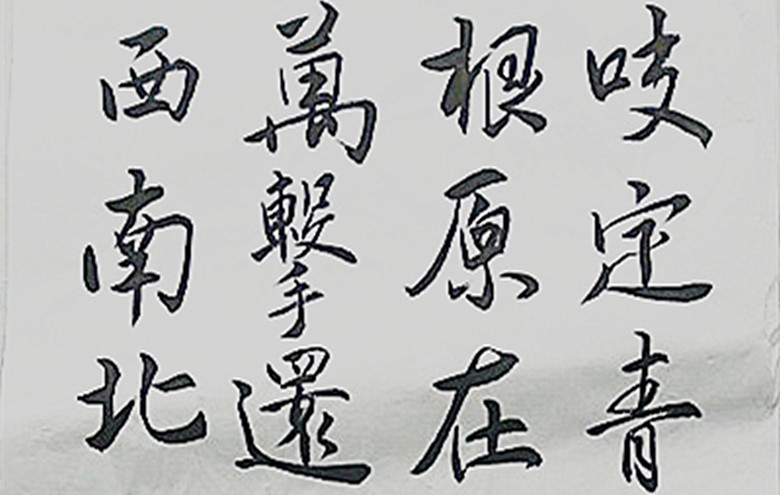 吱定青
根原在
萬擊還
西南北